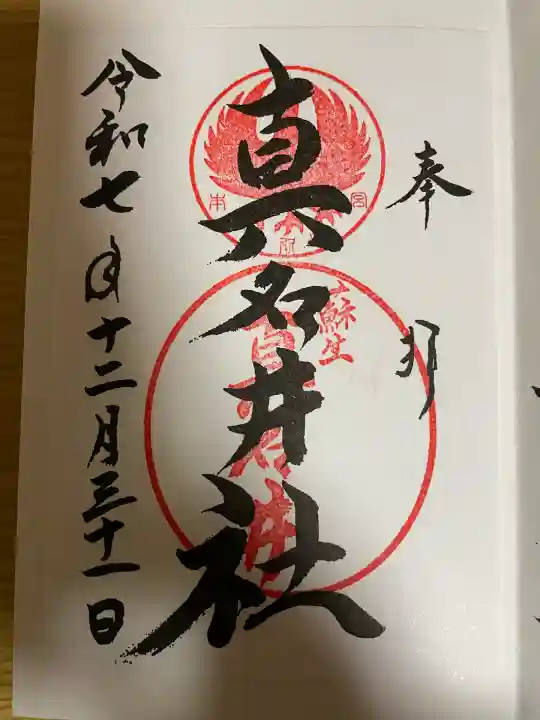 奉拝
真名井社
令和七年十二月三十一日
蘇生